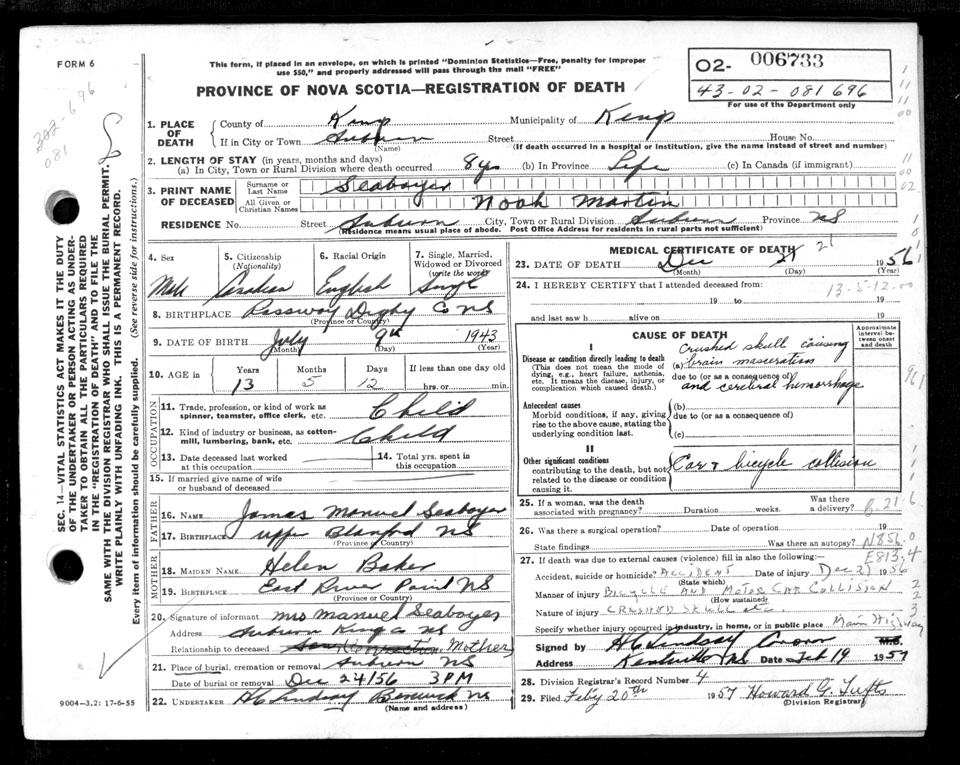 FORM 6
This form, if placed in an envelope, on which is printed "Dominion Statistics—Free, penalty for improper
use $50," and properly addressed will pass through the mail "FREE"
PROVINCE OF NOVA SCOTIA—REGISTRATION OF DEATH
02- 006733
43-02-081696
For use of the Department only
302-696
081
1. PLACE OF DEATH
County of Kings Municipality of Kings
If in City or Town Auburn Street House No.
(Name) (If death occurred in a hospital or institution, give the name instead of street and number)
2. LENGTH OF STAY (in years, months and days)
(a) In City, Town or Rural Division where death occurred 8 yrs (b) In Province Life (c) In Canada (if immigrant)
3. PRINT NAME OF DECEASED
Surname or Last Name Seaboyer
All Given or Christian Names Noah Martin
RESIDENCE No. Street Auburn City, Town or Rural Division Auburn Province NS
(Residence means usual place of abode. Post Office Address for residents in rural parts not sufficient)
4. Sex Male
5. Citizenship (Nationality) Canadian
6. Racial Origin English
7. Single, Married, Widowed or Divorced (write the word) Single
8. BIRTHPLACE Rossway Digby Co NS
(Province or Country)
9. DATE OF BIRTH July 9th 1943
(Month) (Day) (Year)
10. AGE in Years Months Days If less than one day old
13 5 12 hrs. or min.
OCCUPATION
11. Trade, profession, or kind of work as spinner, teamster, office clerk, etc. Child
12. Kind of industry or business, as cotton-mill, lumbering, bank, etc. Child
13. Date deceased last worked at this occupation
14. Total yrs. spent in this occupation
15. If married give name of wife or husband of deceased
FATHER
16. NAME James Manuel Seaboyer
17. BIRTHPLACE Upper Blanford NS
(Province or Country)
MOTHER
18. MAIDEN NAME Helen Baker
19. BIRTHPLACE East River Point NS
(Province or Country)
20. Signature of informant Mrs Manuel Seaboyer
Address Auburn Kings NS
Relationship to deceased Son Correction Mother
21. Place of burial, cremation or removal Auburn NS
Date of burial or removal Dec 24/56 3 PM
22. UNDERTAKER H C Lindsay Berwick NS
(Name and address)
9004-3.2: 17-6-55
SEC. 14—VITAL STATISTICS ACT MAKES IT THE DUTY
OF THE UNDERTAKER OR PERSON ACTING AS UNDER-
TAKER TO OBTAIN ALL THE PARTICULARS REQUIRED
IN THE "REGISTRATION OF DEATH" AND TO FILE THE
SAME WITH THE DIVISION REGISTRAR WHO SHALL ISSUE THE BURIAL PERMIT.
WRITE PLAINLY WITH UNFADING INK. THIS IS A PERMANENT RECORD.
Every item of information should be carefully supplied. (See reverse side for instructions.)
MEDICAL CERTIFICATE OF DEATH
23. DATE OF DEATH Dec 21 21 1956
(Month) (Day) (Year)
24. I HEREBY CERTIFY that I attended deceased from:
13-5-12-00
19 to 19
and last saw h alive on 19
CAUSE OF DEATH
Approximate interval between onset and death
I
Disease or condition directly leading to death
(This does not mean the mode of dying, e.g., heart failure, asthenia, etc. It means the disease, injury, or complication which caused death.)
(a) Crushed skull causing brain maceration
due to (or as a consequence of)
and cerebral hemorrhage
Antecedent causes
Morbid conditions, if any, giving rise to the above cause, stating the underlying condition last.
(b)
due to (or as a consequence of)
(c)
II
Other significant conditions
contributing to the death, but not related to the disease or condition causing it.
Car & bicycle collision
25. If a woman, was the death associated with pregnancy? Duration weeks. Was there a delivery?
26. Was there a surgical operation? Date of operation 19
State findings Was there an autopsy?
N856.0
E813.4
27. If death was due to external causes (violence) fill in also the following:
Accident, suicide or homicide? ACCIDENT Date of injury Dec 21 1956
(State which)
Manner of injury BICYCLE AND MOTOR CAR COLLISION
(How sustained)
Nature of injury CRUSHED SKULL etc
Specify whether injury occurred in industry, in home, or in public place Main Highway
Signed by H C Lindsay Coroner M.D.
Address Kentville NS Date Feb 19 1957
28. Division Registrar's Record Number 4
29. Filed Feby 20th 1957 Howard G. Tufts
(Division Registrar)